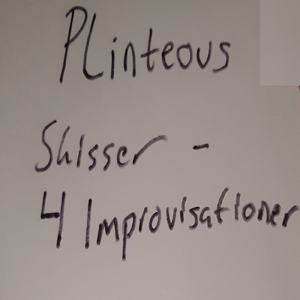 Plinteous
Skisser -
4 Improvisationer